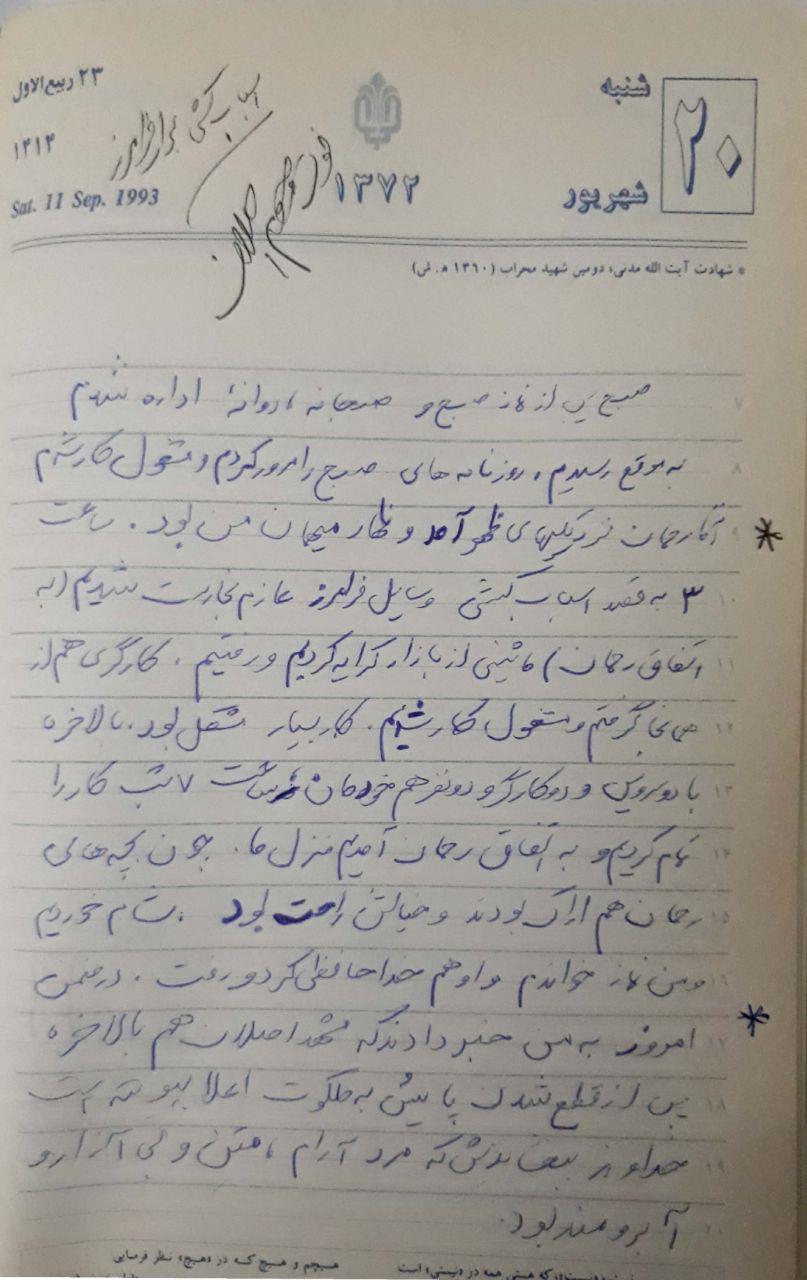 شنبه
۲۰
شهریور
۱۳۷۲
۲۳ ربیع‌الاول
۱۴۱۴
Sat. 11 Sep. 1993
اسباب کشی برای فرامرز
فوت اصلان
* شهادت آیت الله مدنی، دومین شهید محراب (۱۳٦۰ ه. ش)
۷ صبح پس از نماز صبح و صبحانه، روانهٔ اداره شدم
۸ به موقع رسیدم، روزنامه های صبح را مرور کردم و مشغول کار شدم
۹ آقا رحمان نزدیکیهای ظهر آمد و نهار میهمان من بود. ساعت
۱۰ ۳ به قصد اسباب کشی وسایل فرامرز عازم تجارت شدیم (به
۱۱ اتفاق رحمان) ماشینی از بازار کرایه کردیم و رفتیم. کارگری هم از
۱۲ همانجا گرفتم و مشغول کار شدیم. کار بسیار مشکل بود. بالاخره
۱۳ با دو سرویس و دو کارگر و دو نفر هم خودمان ساعت ۷ شب کار را
۱۴ تمام کردیم و به اتفاق رحمان آمدیم منزل ما. چون بچه های
۱۵ رحمان هم اراک بودند و خیالش راحت بود. شام خوردیم
و من نماز خواندم و او هم خداحافظی کرد و رفت. در ضمن
۱۷ امروز به من خبر دادند که اصلان هم بالاخره
۱۸ پس از قطع شدن پایش به ملکوت اعلا پیوسته است
۱۹ خداوند بیامرزدش که مرد آرام، متین و بی آزار و
آبرومند بود.
هیچم و هیچ که در «هیچ» نظر فرمایی
که هستی همه در «نیستی» است